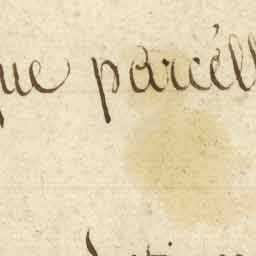 que parcéll